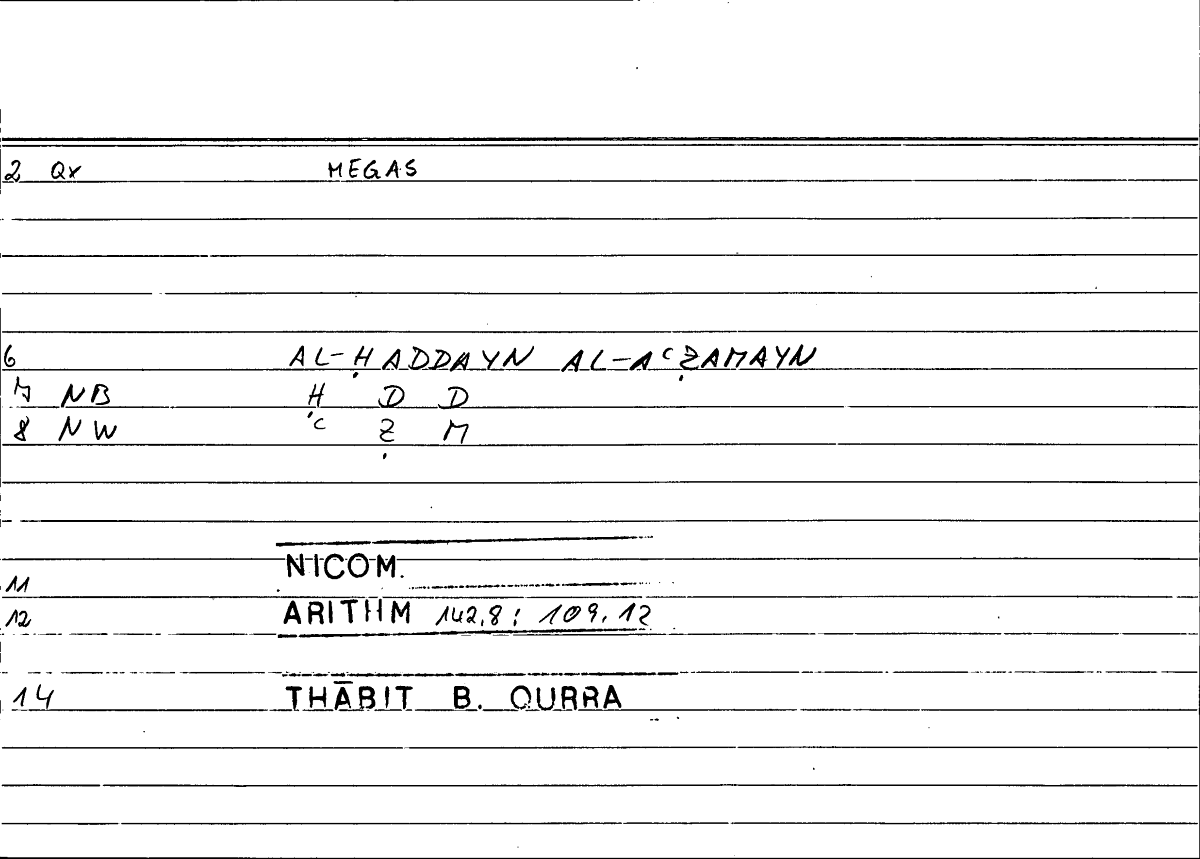 2 Qx MEGAS
6 AL-ḤADDAYN AL-AᶜẒAMAYN
7 NB Ḥ D D
8 NW ᶜ Ẓ M
11 NICOM.
12 ARITHM 142,8; 109,12
14 THĀBIT B. QURRA